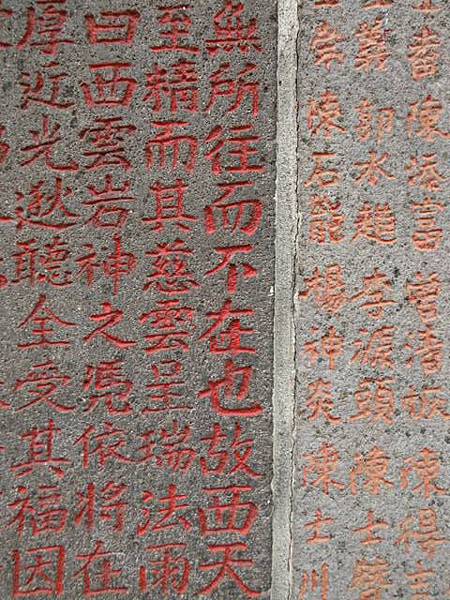 番 陳振富 曾清 陳得
郭水 李源頭 陳士
宗 陳石龍 楊神炎 陳士川
無所往而不在也故西天
至精而其慈雲呈瑞法雨
曰西雲岩神之凴依將在
厚近光聽全受其福因